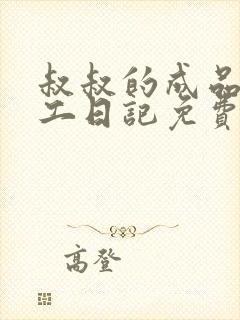 叔叔的成品
工日記免費
高登